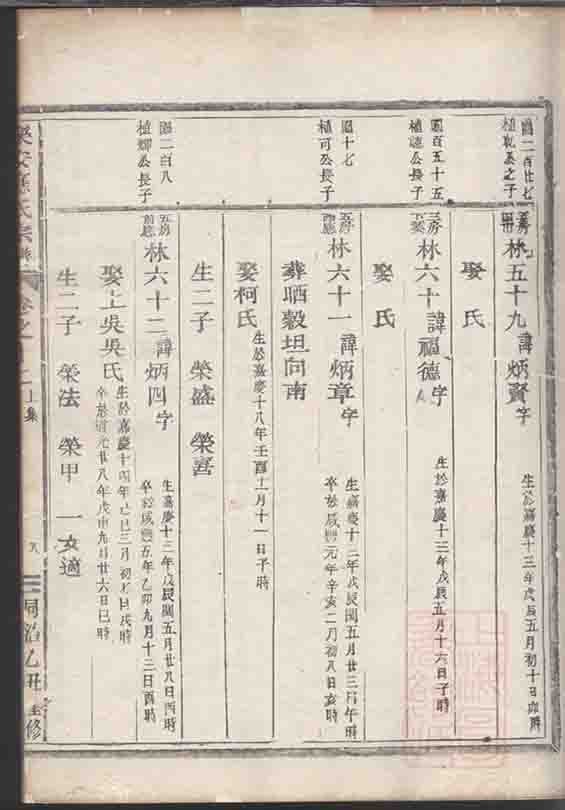 圖二百廿七
植乾公之子
林五十九諱炳賢字
生於嘉慶十三年戊辰五月初十日卯時
娶 氏
圖百五十五
植諒公長子
林六十諱福德字
生於嘉慶十三年戊辰五月十六日子時
娶 氏
圖十七
植可公長子
五房前廳
林六十一諱炳章字
生嘉慶十三年戊辰閏五月廿三日午時
卒於咸豐元年辛亥二月初八日亥時
葬晒穀坦向南
娶柯氏
生於嘉慶十八年 酉 月十一日子時
生二子 榮盛 榮喜
圖二百八
植輝公長子
五房前廳
林六十二諱炳四字
生嘉慶十三年戊辰閏五月廿八日酉時
卒於咸豐五年乙卯九月十三日酉時
娶上吳吳氏
生於嘉慶十四年己巳三月初七日戌時
卒於道光廿八年戊申九月廿六日巳時
生二子 榮法 榮甲 一女適
樂安孫氏宗譜
卷之十
上集
同治乙丑重修